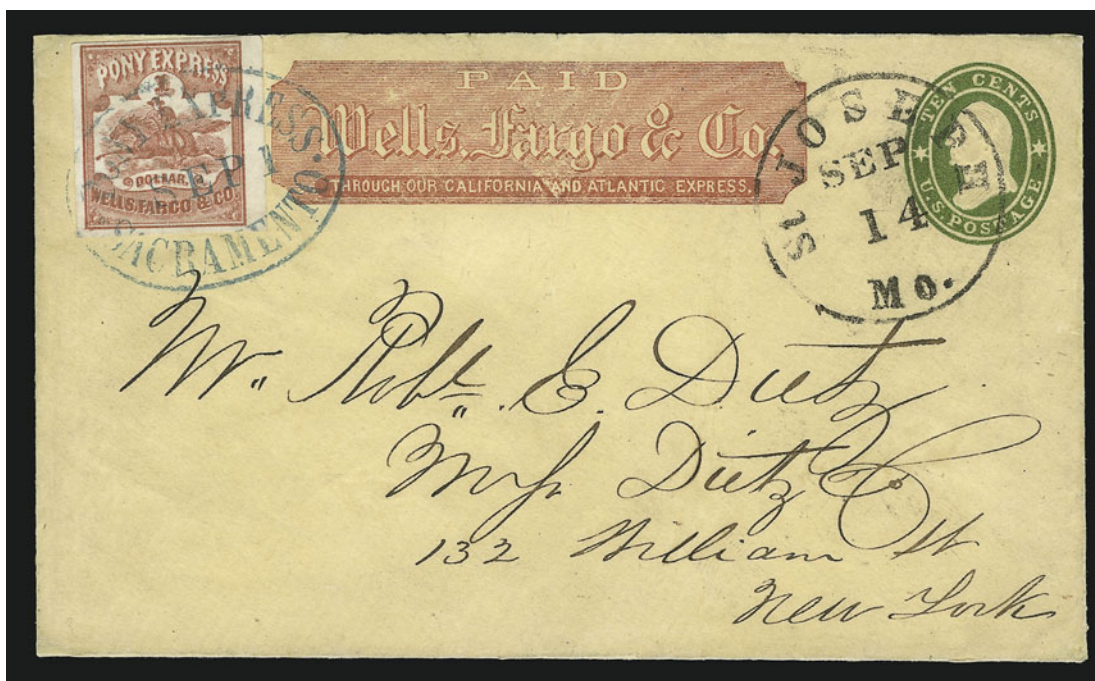 PONY EXPRESS
1
DOLLAR
WELLS, FARGO & CO.
PONY EXPRESS.
SEP 1
SACRAMENTO
PAID
Wells, Fargo & Co.
THROUGH OUR CALIFORNIA AND ATLANTIC EXPRESS.
ST JOSEPH
SEP
14
Mo.
TEN CENTS
U.S. POSTAGE
Mr. Robt. E. Dietz
Messrs Dietz & Co.
132 William St
New York